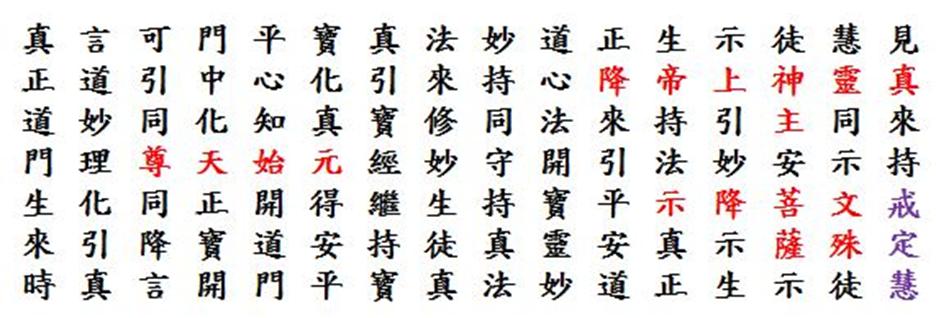 見真來持戒定慧
慧靈同示文殊徒
徒神主安菩薩示
示上引妙降示生
生帝持法示真正
正降來引平安道
道心法開寶靈妙
妙持同守持真法
法來修妙生徒真
真引寶經繼持寶
寶化真元得安平
平心知始開道門
門中化天正寶開
可引同尊同降言
言道妙理化引真
真正道門生來時